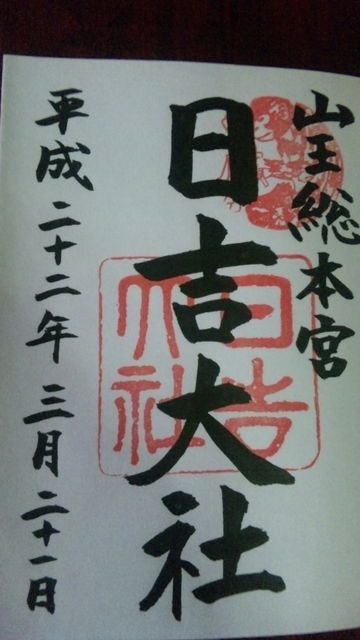 山王總本宮
日吉大社
日吉大社
平成二十二年三月二十一日